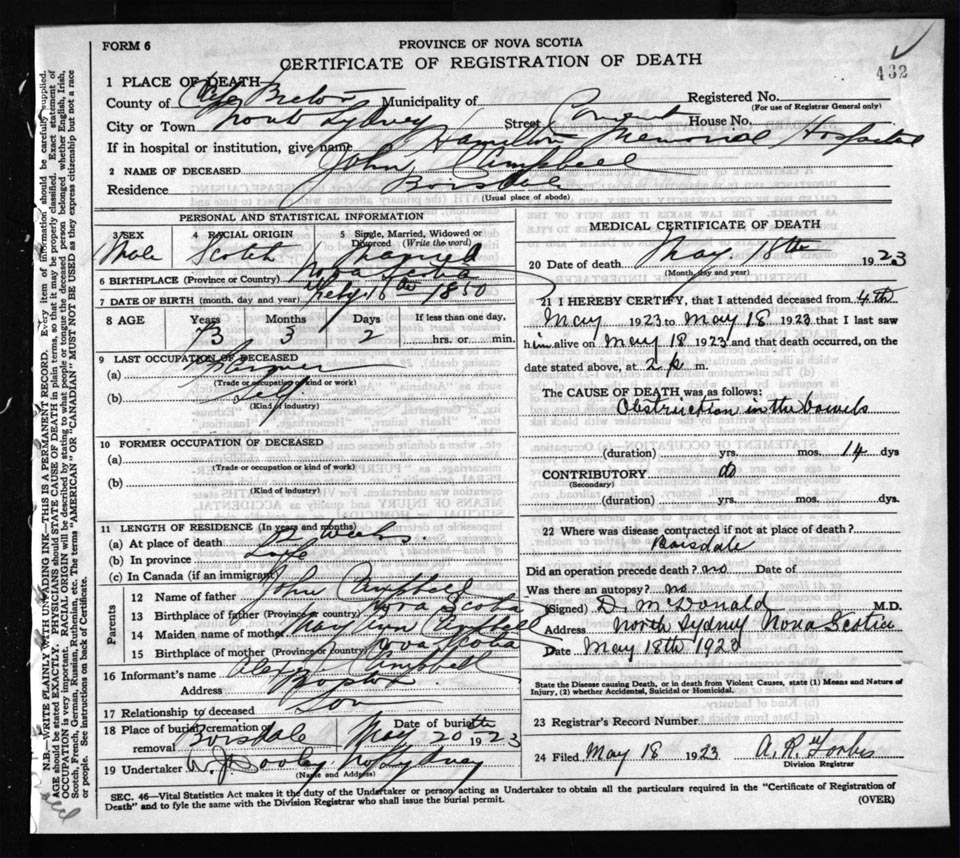 FORM 6
PROVINCE OF NOVA SCOTIA
CERTIFICATE OF REGISTRATION OF DEATH
432
1 PLACE OF DEATH
County of Cape Breton Municipality of Registered No.
(For use of Registrar General only)
City or Town North Sydney Street House No.
If in hospital or institution, give name Hamilton Memorial Hospital
2 NAME OF DECEASED John Campbell
Residence Boisdale
(Usual place of abode)
PERSONAL AND STATISTICAL INFORMATION
3 SEX 4 RACIAL ORIGIN 5 Single, Married, Widowed or Divorced (Write the word)
Male Scotch Married
6 BIRTHPLACE (Province or Country) Nova Scotia
7 DATE OF BIRTH (month, day and year) Feby 16th 1850
8 AGE Years Months Days If less than one day,
73 3 2 hrs. or min.
9 LAST OCCUPATION OF DECEASED
(a) Farmer
(Trade or occupation or kind or work)
(b) Self
(Kind of industry)
10 FORMER OCCUPATION OF DECEASED
(a)
(Trade or occupation or kind of work)
(b)
(Kind of industry)
11 LENGTH OF RESIDENCE (In years and months)
(a) At place of death 2 weeks.
(b) In province Life
(c) In Canada (if an immigrant)
Parents
12 Name of father John Campbell
13 Birthplace of father (Province or country) Nova Scotia
14 Maiden name of mother Mary Ann Campbell
15 Birthplace of mother (Province or country) Nova Scotia
16 Informant's name Campbell
Address Boston
17 Relationship to deceased Son
18 Place of burial cremation or removal Boisdale Date of burial May 20th 1923
19 Undertaker Dooley No Sydney
(Name and Address)
MEDICAL CERTIFICATE OF DEATH
20 Date of death May. 18th 1923
(Month, day and year)
21 I HEREBY CERTIFY, that I attended deceased from 4th
May 1923 to May 18 1923 that I last saw
him alive on May 18 1923 and that death occurred, on the
date stated above, at 2 p m.
The CAUSE OF DEATH was as follows:
Obstruction in the bowels
(duration) yrs. mos. 14 dys
CONTRIBUTORY do
(Secondary)
(duration) yrs. mos. dys.
22 Where was disease contracted if not at place of death?
Boisdale
Did an operation precede death? no Date of
Was there an autopsy? no
(Signed) D. McDonald M.D.
Address North Sydney Nova Scotia
Date May 18th 1923
State the Disease causing Death, or in death from Violent Causes, state (1) Means and Nature of
Injury, (2) whether Accidental, Suicidal or Homicidal.
23 Registrar's Record Number
24 Filed May 18 1923 A. R. Forbes
Division Registrar
SEC. 46—Vital Statistics Act makes it the duty of the Undertaker or person acting as Undertaker to obtain all the particulars required in the "Certificate of Registration of
Death" and to fyle the same with the Division Registrar who shall issue the burial permit. (OVER)
N.B.—WRITE PLAINLY WITH UNFADING INK—THIS IS A PERMANENT RECORD. Every item of information should be carefully supplied.
AGE should be stated EXACTLY. PHYSICIANS should STATE CAUSE OF DEATH in plain terms, so that it may be properly classified. Exact statement of
OCCUPATION is very important. RACIAL ORIGIN will be described by stating to what people or tongue the deceased person belonged whether English, Irish,
Scotch, French, German, Russian, Ruthenian, etc. The terms "AMERICAN" or "CANADIAN" MUST NOT BE USED as they express citizenship but not a race
or people. See instructions on back of Certificate.